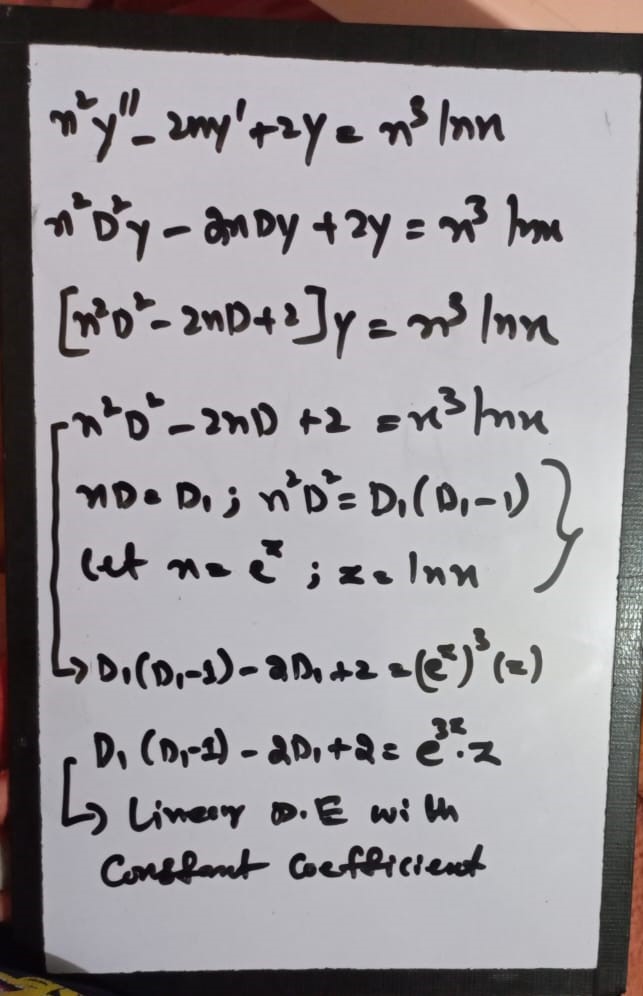 x²y'' - 2xy' + 2y = x³ lnx
x²D²y - 2xDy + 2y = x³ lnx
[x²D² - 2xD + 2]y = x³ lnx
x²D² - 2xD + 2 = x³ lnx
xD = D₁ ; x²D² = D₁(D₁-1)
let x = e^z ; z = lnx
↳ D₁(D₁-1) - 2D₁ + 2 = (e^z)³ (z)
D₁(D₁-1) - 2D₁ + 2 = e^3z . z
↳ Linear D.E with
Constant Coefficient